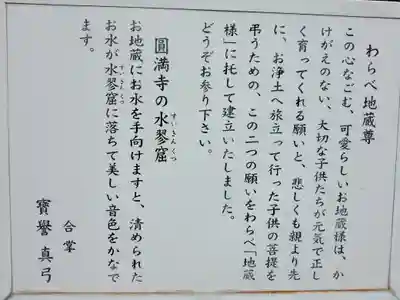 わらべ地蔵尊
この心なごむ、可愛らしいお地蔵様は、か
けがえのない、大切な子供たちが元気で正し
く育ってくれる願いと、悲しくも親より先
に、お浄土へ旅立って行った子供の菩提を
弔うための、この二つの願いをわらべ「地蔵
様」に托して建立いたしました。
どうぞお参り下さい。
圓満寺の水琴窟
すいきんくつ
お地蔵にお水を手向けますと、清められた
お水が水琴窟に落ちて美しい音色をかなで
すいきんくつ
ます。
合掌
寳譽真弓